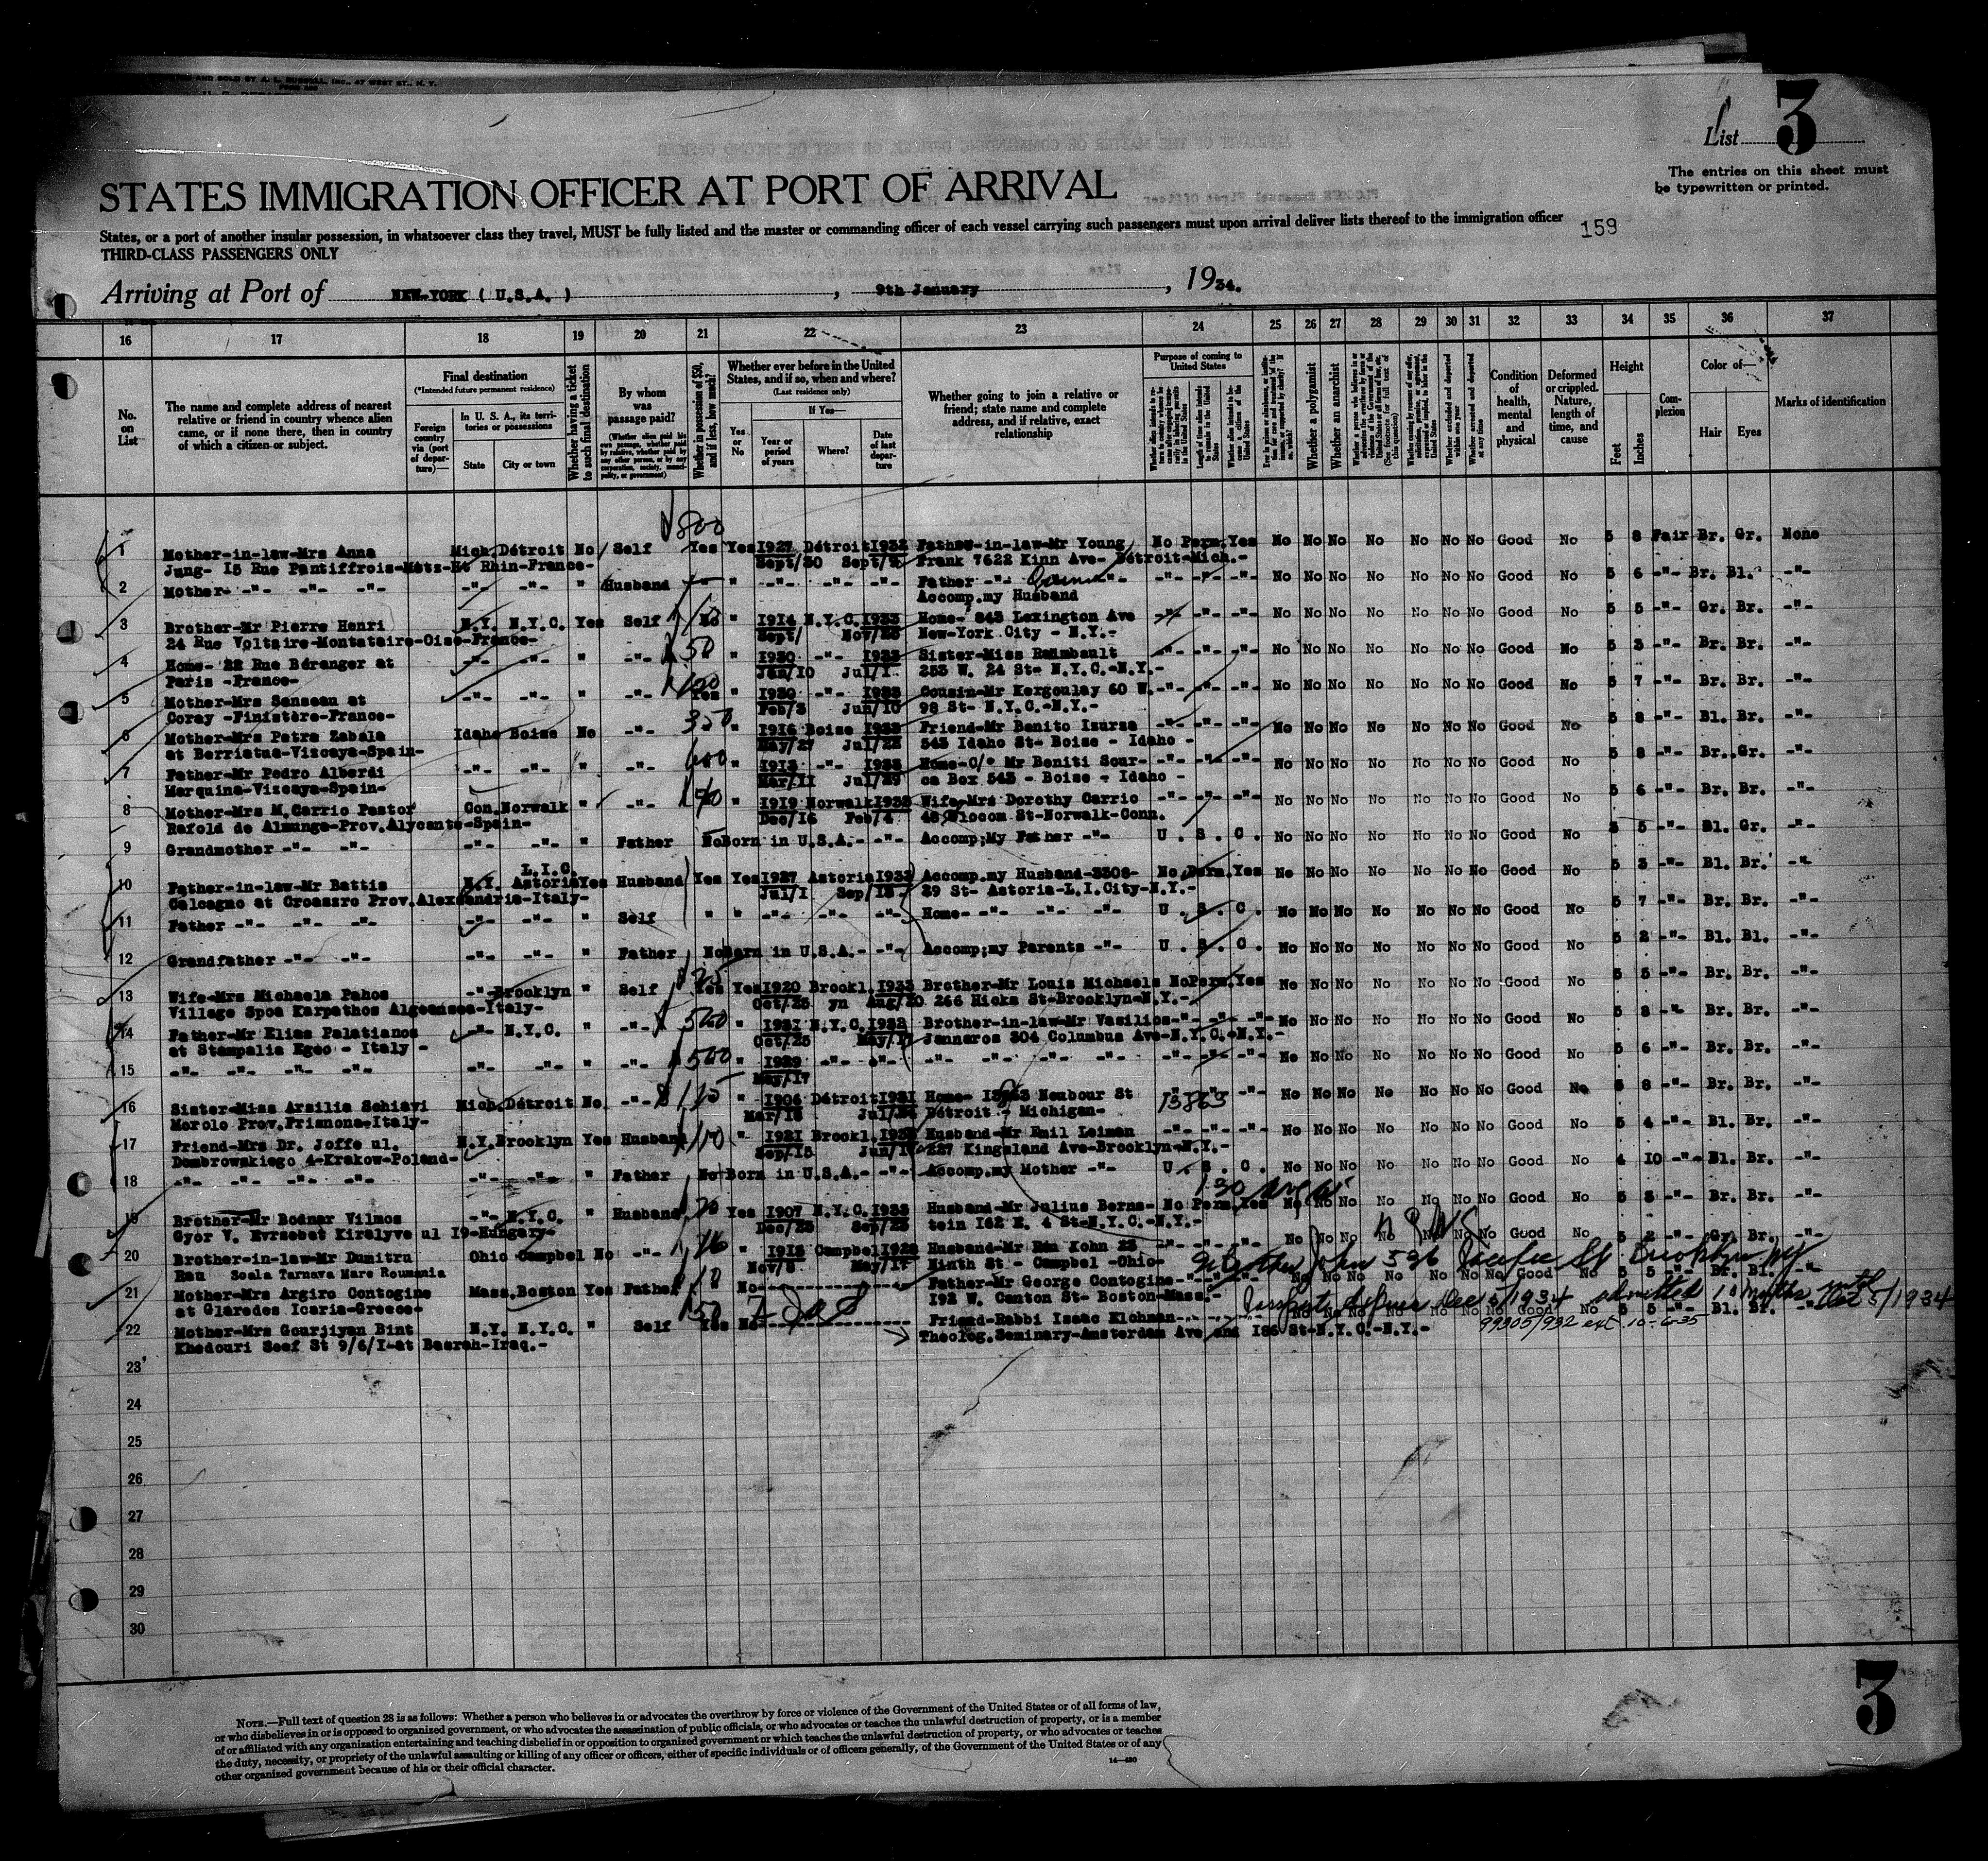 AND SOLD BY A. L. RUSSELL, INC., 47 WEST ST., N. Y.
List 3
The entries on this sheet must
be typewritten or printed.
STATES IMMIGRATION OFFICER AT PORT OF ARRIVAL
States, or a port of another insular possession, in whatsoever class they travel, MUST be fully listed and the master or commanding officer of each vessel carrying such passengers must upon arrival deliver lists thereof to the immigration officer
159
THIRD-CLASS PASSENGERS ONLY
Arriving at Port of NEW-YORK ( U.S.A. ), 9th January, 1934.
16 17 18 19 20 21 22 23 24 25 26 27 28 29 30 31 32 33 34 35 36 37
No. on List
The name and complete address of nearest relative or friend in country whence alien came, or if none there, then in country of which a citizen or subject.
Final destination
(*Intended future permanent residence)
Foreign country via (port of departure)—
In U. S. A., its territories or possessions
State City or town
Whether having a ticket to such final destination
By whom was passage paid?
Whether in possession of $50, and if less, how much?
Whether ever before in the United States, and if so, when and where?
(Last residence only)
If Yes—
Yes or No
Year or period of years
Where?
Date of last departure
Whether going to join a relative or friend; state name and complete address, and if relative, exact relationship
Purpose of coming to United States
Whether a polygamist
Whether an anarchist
Condition of health, mental and physical
Deformed or crippled. Nature, length of time, and cause
Height
Feet Inches
Complexion
Color of—
Hair Eyes
Marks of identification
$800
1 Mother-in-law-Mrs Anna Mich. Détroit No Self Yes Yes 1927 Détroit 1932 Father-in-law-Mr Young No Perm. Yes No No No No No No No Good No 5 8 Fair Br. Gr. None
Jung- 15 Rue Pantiffrois-Metz-Ht Rhin-France- Sept/30 Sept/ Frank 7622 Kinn Ave- Détroit-Mich.-
2 Mother- -"- -"- -"- -"- -"- " Husband " -"- -"- -"- Father -"- -"- -"- -"- -"- No No No No No No No Good No 5 6 -"- Br. Bl. -"-
Accomp.my Husband
3 Brother-Mr Pierre Henri N.Y. N.Y.C. Yes Self No " 1914 N.Y.C. 1933 Home- 843 Lexington Ave -"- -"- -"- No No No No No No No Good No 5 5 -"- Gr. Br. -"-
24 Rue Voltaire-Montataire-Oise-France- Sept/ Nov/ New-York City - N.Y.-
4 Home- 22 Rue Béranger at -"- -"- " -"- 50 " 1930 -"- 1933 Sister-Miss Raimbault -"- -"- -"- No No No No No No No Good No 5 3 -"- Br. Br. -"-
Paris -France- Jan/10 Jul/1 253 W. 24 St- N.Y.C.-N.Y.-
5 Mother-Mrs Sanseau at -"- -"- " -"- Yes " 1930 -"- 1933 Cousin-Mr Kergoulay 60 W. -"- -"- -"- No No No No No No No Good No 5 7 -"- Br. Br. -"-
Coray -Finistère-France- Feb/3 Jun/10 98 St- N.Y.C.-N.Y.-
6 Mother-Mrs Petra Zabala Idaho Boise No -"- 350 " 1916 Boise 1933 Friend-Mr Benito Isursa -"- -"- -"- No No No No No No No Good No 5 8 -"- Bl. Br. -"-
at Berriatua-Viscaya-Spain- May/27 Jul/22 543 Idaho St- Boise - Idaho -
7 Father-Mr Pedro Alberdi -"- -"- " -"- 600 " 1913 -"- 1933 Home-C/° Mr Beniti Sour- -"- -"- -"- No No No No No No No Good No 5 8 -"- Br. Gr. -"-
Marquina-Viscaya-Spain- Mar/11 Jul/29 ca Box 543 - Boise - Idaho -
8 Mother-Mrs M.Carrio Pastor Con. Norwalk " -"- " 1919 Norwalk 1933 Wife-Mrs Dorothy Carrio -"- -"- -"- No No No No No No No Good No 5 6 -"- Br. Br. -"-
Rafold de Almunge-Prov.Alycante-Spain- Dec/16 Feb/4 St-Norwalk-Conn.
9 Grandmother -"- -"- -"- -"- " Father No Born in U.S.A.- -"- Accomp;My Father -"- U . S . C . No No No No No No No Good No 3 5 -"- Bl. Gr. -"-
10 Father-in-law-Mr Battis N.Y. L.I.C. Astoria Yes Husband Yes Yes 1927 Astoria 1933 Accomp.my Husband-3308- No Perm. Yes No No No No No No No Good No 5 3 -"- Bl. Br. -"-
Calcagno at Croaszro Prov.Alexandria-Italy- Jul/1 Sep/18 29 St- Astoria-L.I.City-N.Y.-
11 Father -"- -"- -"- -"- -"- " Self " " -"- -"- -"- Home- -"- -"- -"- U . S . C . No No No No No No No Good No 5 7 -"- Br. Br. -"-
12 Grandfather -"- -"- -"- -"- " Father No Born in U.S.A.- -"- Accomp;my Parents -"- U . S . C . No No No No No No No Good No 5 2 -"- Bl. Bl. -"-
13 Wife-Mrs Michaela Pahos -"- Brooklyn " Self Yes Yes 1920 Brookl. 1933 Brother-Mr Louis Michaels No Perm. Yes No No No No No No No Good No 5 5 -"- Br. Br. -"-
Village Spoa Karpathos Algeansea-Italy- Oct/25 yn Aug/20 266 Hicks St-Brooklyn-N.Y.-
14 Father-Mr Elias Palatianos -"- N.Y.C. " -"- 500 " 1931 N.Y.C. 1932 Brother-in-law-Mr Vasilios -"- -"- -"- No No No No No No No Good No 5 8 -"- Br. Br. -"-
at Stampalia Egeo - Italy - Oct/25 May/ Jannaros 304 Columbus Ave-N.Y.C.-N.Y.-
15 -"- -"- -"- -"- -"- -"- " -"- 500 " 1929 -"- -"- -"- -"- -"- -"- -"- -"- No No No No No No No Good No 5 6 -"- Br. Br. -"-
May/17
16 Sister-Miss Arsilia Schiavi Mich. Détroit No -"- " 1906 Détroit 1931 Home- Neubour St 13863 -"- No No No No No No No Good No 5 8 -"- Br. Br. -"-
Morolo Prov.Frisnona-Italy- Mar/18 Jul/ Détroit - Michigan-
17 Friend-Mrs Dr. Joffe ul. N.Y. Brooklyn Yes Husband " 1921 Brookl. Husband-Mr Emil Leiman -"- -"- -"- No No No No No No No Good No 5 4 -"- Bl. Br. -"-
Dombrowskiego 4-Krakow-Poland- Sep/15 Jun/ 227 Kingsland Ave-Brooklyn-N.Y.-
18 -"- -"- -"- -"- -"- -"- " Father No Born in U.S.A.- -"- Accomp.my Mother -"- U . S . C . No No No No No No No Good No 4 10 -"- Bl. Br. -"-
19 Brother-Mr Bodnar Vilmos -"- N.Y.C. " Husband Yes 1907 N.Y.C. 1933 Husband-Mr Julius Berns- No Perm. Yes No No No No No No No Good No 5 3 -"- Br. Br. -"-
Gyor V. Evrsebet Kiralyve ul 19-Hungary- Dec/23 Sep/23 tein 162 E. 4 St-N.Y.C.-N.Y.-
20 Brother-in-law-Mr Dumitru Ohio Campbel No -"- " 1913 Campbel 1929 Husband-Mr Kohn 23 -"- -"- -"- No No No No No No No Good No 5 2 -"- Gr. Br. -"-
Rau Seala Tarnava Mare Roumania Nov/8 May/17 Ninth St - Campbel -Ohio- John 536 Pacific St Brooklyn NY
21 Mother-Mrs Argiro Contogine Mass. Boston Yes Father 10 No Father-Mr George Contogine -"- -"- -"- No No No No No No No Good No 5 5 -"- Br. Bl. -"-
at Glaredes Icaria-Greece- 192 W. Canton St- Boston-Mass.-
Passport expires Dec 5/1934 admitted 10 months until Dec 5/1934
22 Mother-Mrs Gourjiyan Bint N.Y. N.Y.C. " Self 50 Yes No Friend-Rabbi Isaac Elchman- No No No No No No No Good No 5 5 -"- Bl. Br. -"-
Khedouri Seef St 9/6/I-at Basrah-Iraq.- Theolog.Seminary-Amsterdam Ave and 186 St-N.Y.C.-N.Y.-
99305/932 ext 10-6-35
23
24
25
26
27
28
29
30
3
NOTE.—Full text of question 28 is as follows: Whether a person who believes in or advocates the overthrow by force or violence of the Government of the United States or of all forms of law,
or who disbelieves in or is opposed to organized government, or who advocates the assassination of public officials, or who advocates or teaches the unlawful destruction of property, or is a member
of or affiliated with any organization entertaining and teaching disbelief in or opposition to organized government or which teaches the unlawful destruction of property, or who advocates or teaches
the duty, necessity, or propriety of the unlawful assaulting or killing of any officer or officers, either of specific individuals or of officers generally, of the Government of the United States or of any
other organized government because of his or their official character.
14—480